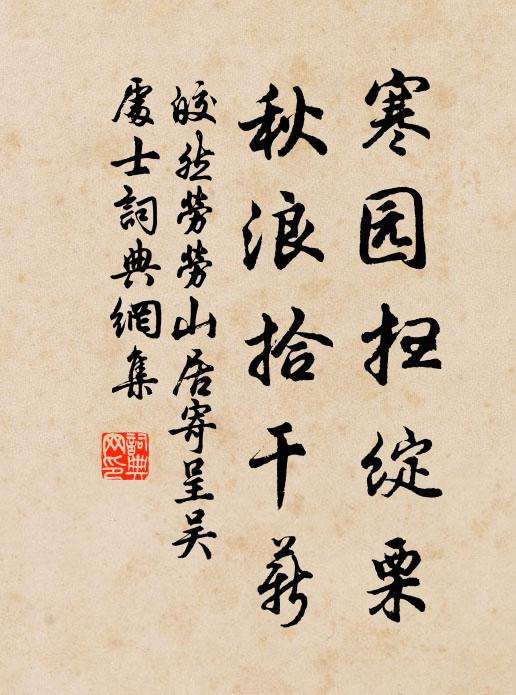 寒园扫绽栗
秋浪拾干薪
皎然劳劳山居寄呈吴
處士詞典網集
詞典网印